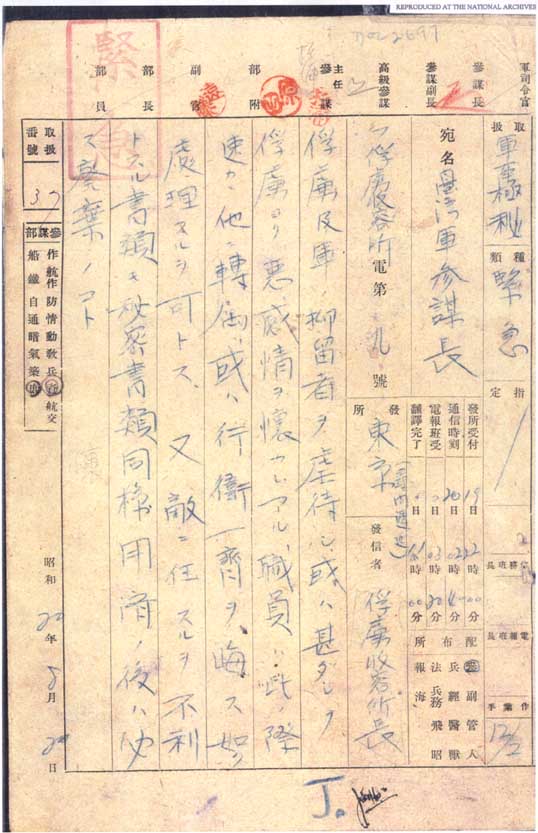 REPRODUCED AT THE NATIONAL ARCHIVES
DOC 2697
緊急
軍司令官
參謀長
參謀副長
高級參謀
主任參謀
部附
副官
部長
部員
取扱
軍極秘
種類
緊急
指定
宛名
臺湾軍参謀長
俘虜収容所電第九號
發所受付
19日
22時
00分
通信時刻
20日
02時
40分
電報班受
〃日
03時
20分
飜譯完了
〃日
時
00分
發所
東京
發信者
俘虜収容所長
配布所
參副管人
兵經醫獸
法兵務飛昭
報海
班長
電報班長
作業手
俘虜及軍ノ抑留者ヲ虐待シ或ハ甚ダシク
俘虜ヨリ悪感情ヲ懐カレアル職員ハ此ノ際
速カニ他ニ轉属或ハ行衛一齊ヲ晦ス如ク
處理スルヲ可トス、又敵ニ任スルヲ不利
トスル書類モ秘密書類同様用済ノ後ハ必
ズ廃棄ノコト
取扱番號
37
參謀部
作航作防情動教兵航交
船鐵自通暗氣築
昭和20年8月20日
J.